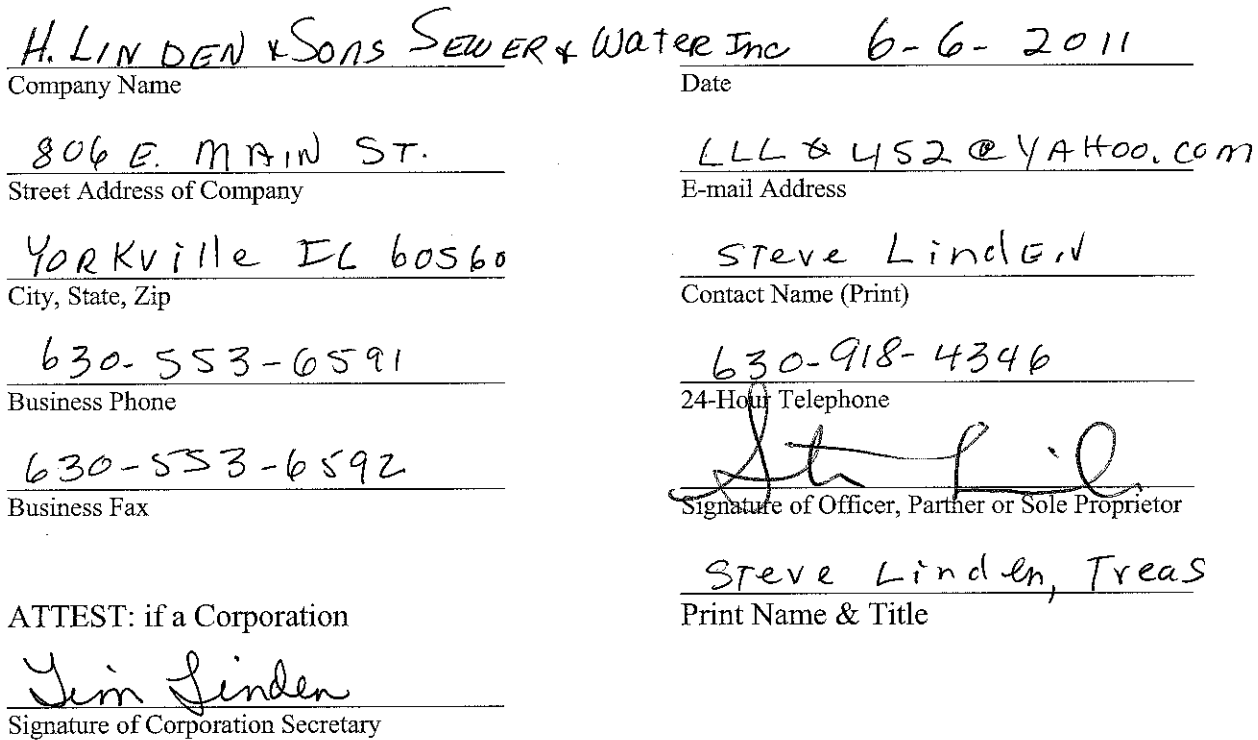 H. LINDEN & Sons SEWER & Water Inc
Company Name
806 E. MAIN ST.
Street Address of Company
YORKville IL 60560
City, State, Zip
630-553-6591
Business Phone
630-553-6592
Business Fax
ATTEST: if a Corporation
Tim Linden
Signature of Corporation Secretary
6-6-2011
Date
452@YAHOO.com
E-mail Address
Steve LindEN
Contact Name (Print)
630-918-4346
24-Hour Telephone
Signature of Officer, Partner or Sole Proprietor
Steve Linden, Treas
Print Name & Title